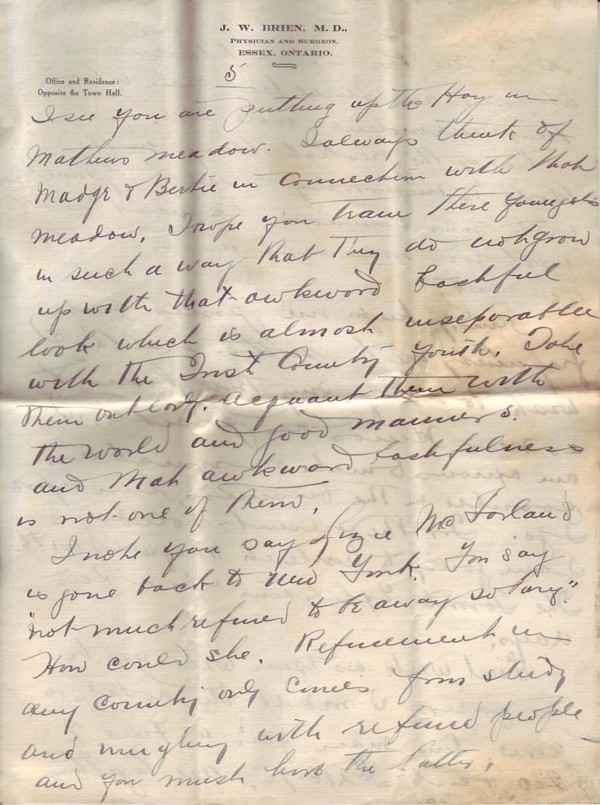 J. W. BRIEN, M. D.,
PHYSICIAN AND SURGEON,
ESSEX, ONTARIO.
5
Office and Residence:
Opposite the Town Hall.
I see you are putting up the Hay in
Mathews meadow. I always think of
Madge & Bertie in connection with that
meadow. I hope you train these youngsters
in such a way that they do not grow
up with that awkward bashful
look which is almost inseparable
with the Irish Country youth. Take
them out early. acquaint them with
the world and good manners.
and that awkward bashfulness
is not one of them.
I note you say Lizzie McFarland
is gone back to New York. You say
"not much refined to be away so long".
How could she. Refinement in
any country only comes from study
and mingling with refined people
and you must have the latter.